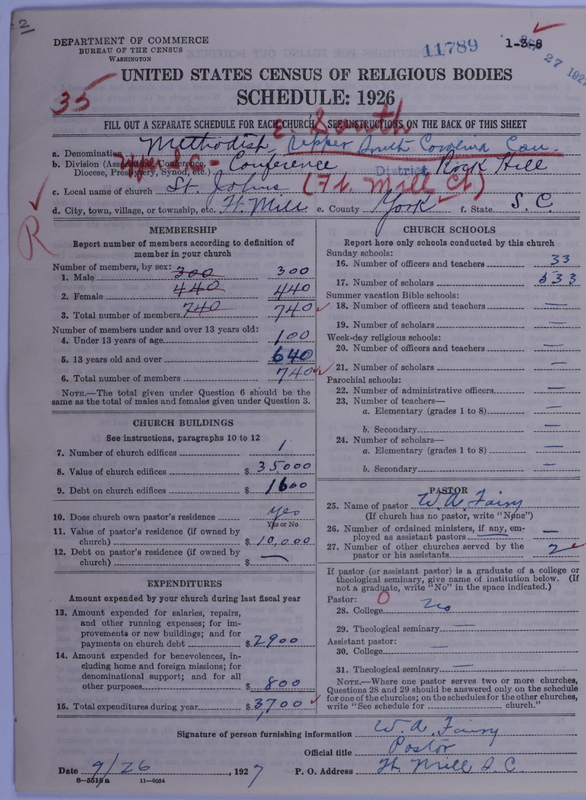 2
DEPARTMENT OF COMMERCE
BUREAU OF THE CENSUS
WASHINGTON
11789
1-3-8
27 192
UNITED STATES CENSUS OF RELIGIOUS BODIES
SCHEDULE: 1926
35
FILL OUT A SEPARATE SCHEDULE FOR EACH CHURCH. SEE INSTRUCTIONS ON THE BACK OF THIS SHEET
a. Denomination Methodist E. South Upper South Carolina Con.
b. Division (Association, Conference, Diocese, Presbytery, Synod, etc.) Upper S C - Conference District Rock Hill
c. Local name of church St. Johns (Ft. Mill Ct)
d. City, town, village, or township, etc. Ft. Mill e. County York f. State S. C.
R
MEMBERSHIP
Report number of members according to definition of
member in your church
Number of members, by sex:
1. Male 300 300
2. Female 440 440
3. Total number of members 740 740
Number of members under and over 13 years old:
4. Under 13 years of age 100
5. 13 years old and over 640
6. Total number of members 740
NOTE.—The total given under Question 6 should be
same as the total of males and females given under Question 3.
CHURCH BUILDINGS
See instructions, paragraphs 10 to 12
7. Number of church edifices 1
8. Value of church edifices $ 35000
9. Debt on church edifices $ 1600
10. Does church own pastor's residence Yes
Yes or No
11. Value of pastor's residence (if owned by
church) $ 10,000
12. Debt on pastor's residence (if owned by
church) $ —
EXPENDITURES
Amount expended by your church during last fiscal year
13. Amount expended for salaries, repairs,
and other running expenses; for im-
provements or new buildings; and for
payments on church debt $ 2900
14. Amount expended for benevolences, in-
cluding home and foreign missions; for
denominational support; and for all
other purposes $ 800
15. Total expenditures during year $ 3700
CHURCH SCHOOLS
Report here only schools conducted by this church
Sunday schools:
16. Number of officers and teachers 33
17. Number of scholars 533
Summer vacation Bible schools:
18. Number of officers and teachers —
19. Number of scholars —
Week-day religious schools:
20. Number of officers and teachers —
21. Number of scholars —
Parochial schools:
22. Number of administrative officers —
23. Number of teachers—
a. Elementary (grades 1 to 8) —
b. Secondary —
24. Number of scholars—
a. Elementary (grades 1 to 8) —
b. Secondary —
PASTOR
25. Name of pastor W. A. Fairy
(If church has no pastor, write "None")
26. Number of ordained ministers, if any, em-
ployed as assistant pastors —
27. Number of other churches served by the
pastor or his assistants 2
If pastor (or assistant pastor) is a graduate of a college or
theological seminary, give name of institution below. (If
not a graduate, write "No" in the space indicated.)
Pastor: 0
28. College No
29. Theological seminary —
Assistant pastor:
30. College —
31. Theological seminary —
NOTE.—Where one pastor serves two or more churches,
Questions 28 and 29 should be answered only on the schedule
for one of the churches; on the schedules for the other churches,
write "See schedule for church."
Signature of person furnishing information W. A. Fairy
Official title Pastor
Date 9/26, 1927 P. O. Address Ft. Mill S. C.
8-5519a 11-9054